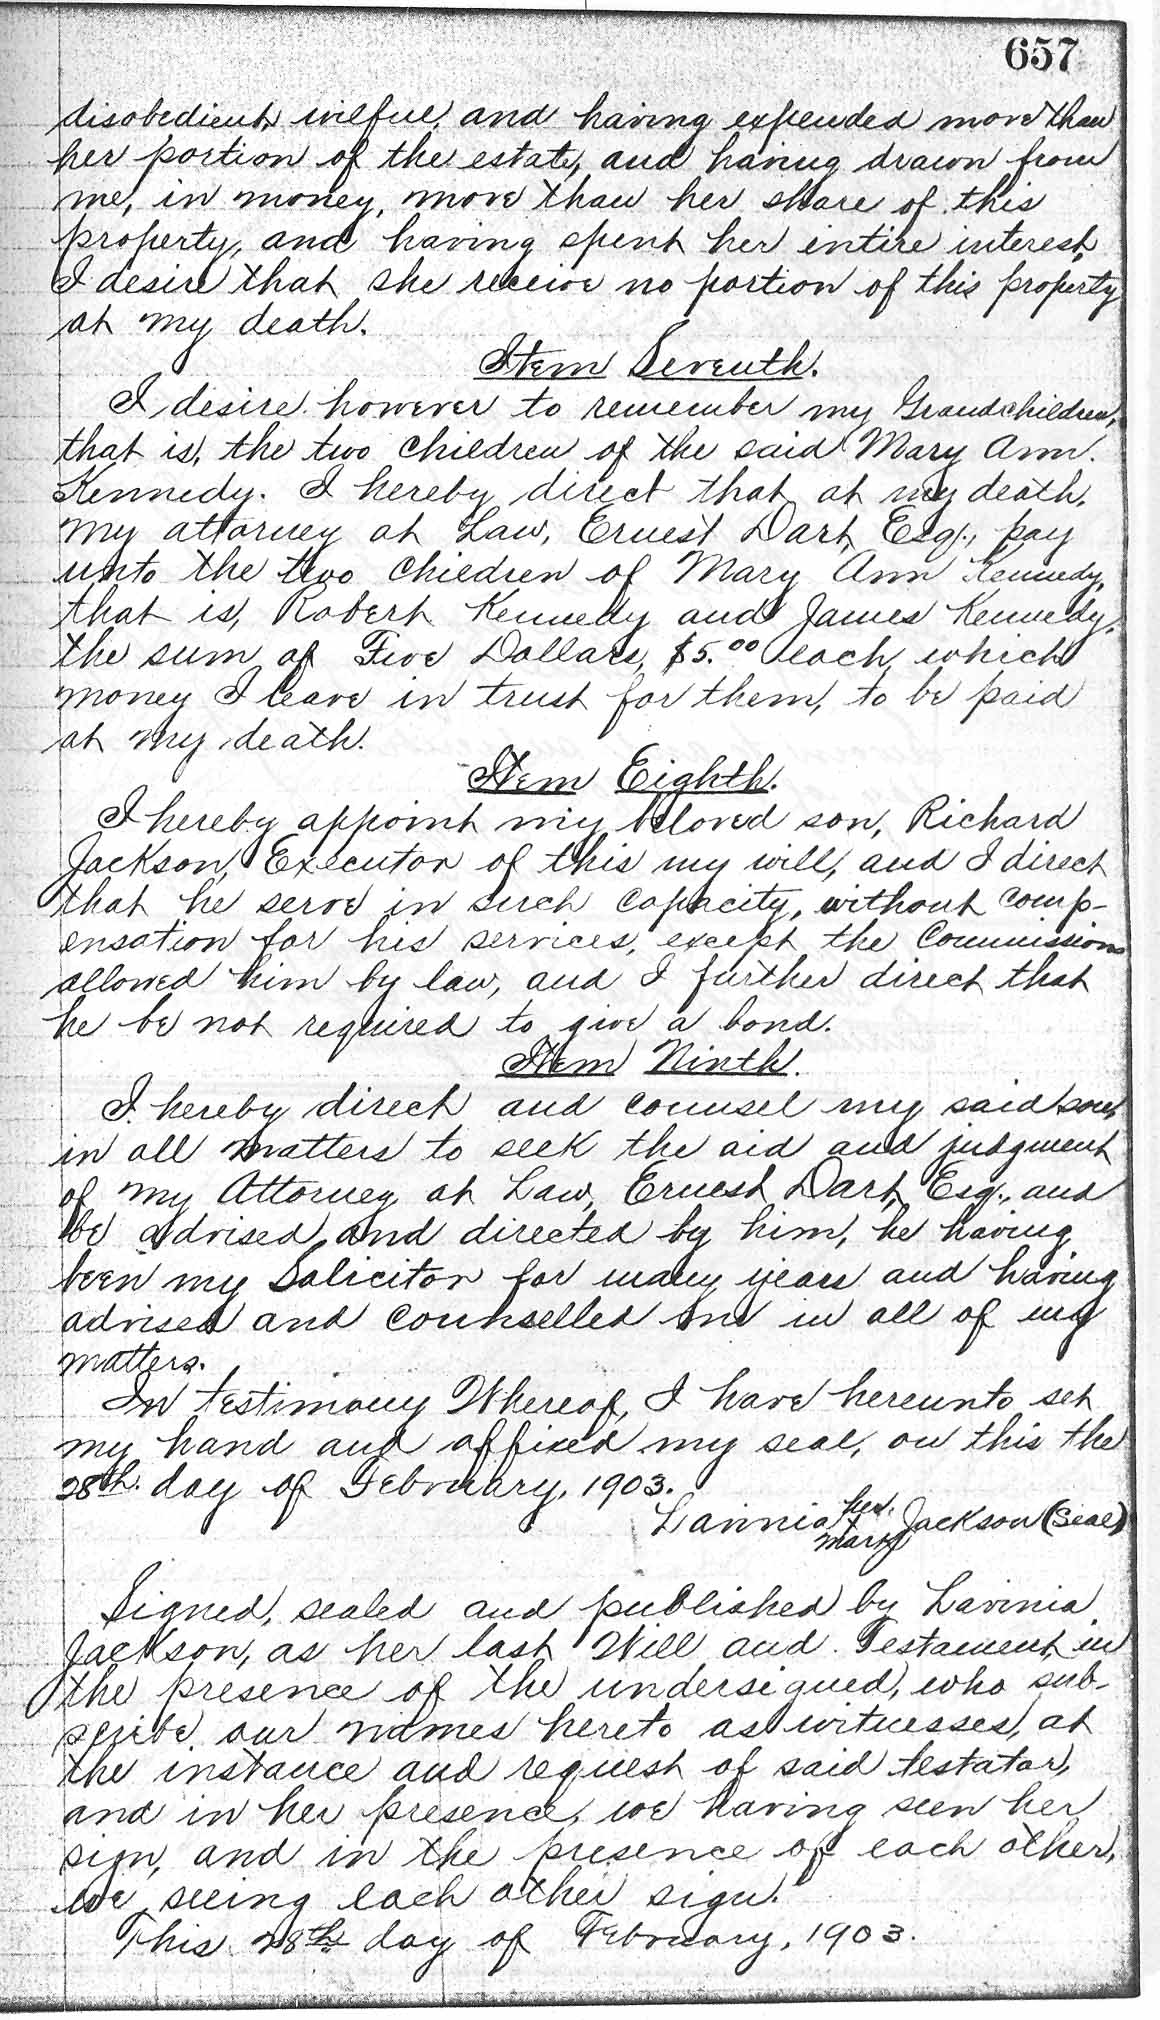 657
disobedient, wilful, and having expended more than
her portion of the estate, and having drawn from
me, in money, more than her share of this
property, and having spent her entire interest,
I desire that she receive no portion of this property
at my death.
Item Seventh.
I desire however to remember my Grandchildren,
that is, the two children of the said Mary Ann
Kennedy. I hereby direct that at my death,
my attorney at Law, Ernest Dart, Esq., pay
unto the two children of Mary Ann Kennedy,
that is, Robert Kennedy and James Kennedy,
the sum of Five Dollars, $5.00 each, which
money I leave in trust for them, to be paid
at my death.
Item Eighth.
I hereby appoint my beloved son, Richard
Jackson, Executor of this my will, and I direct
that he serve in such capacity, without comp-
ensation for his services, except the Commissions
allowed him by law, and I further direct that
he be not required to give a bond.
Item Ninth.
I hereby direct and counsel my said son,
in all matters to seek the aid and judgment
of my Attorney at Law, Ernest Dart, Esq., and
be advised and directed by him, he having
been my Solicitor for many years and having
advised and counselled me in all of my
matters.
In testimony Whereof, I have hereunto set
my hand and affixed my seal, on this the
28th. day of February, 1903.
Lavinia her x mark Jackson (Seal)
Signed, sealed and published by Lavinia
Jackson, as her last Will and Testament, in
the presence of the undersigned, who sub-
scribe our names hereto as witnesses, at
the instance and request of said testator,
and in her presence, we having seen her
sign, and in the presence of each other,
we seeing each other sign.
This 28th day of February, 1903.